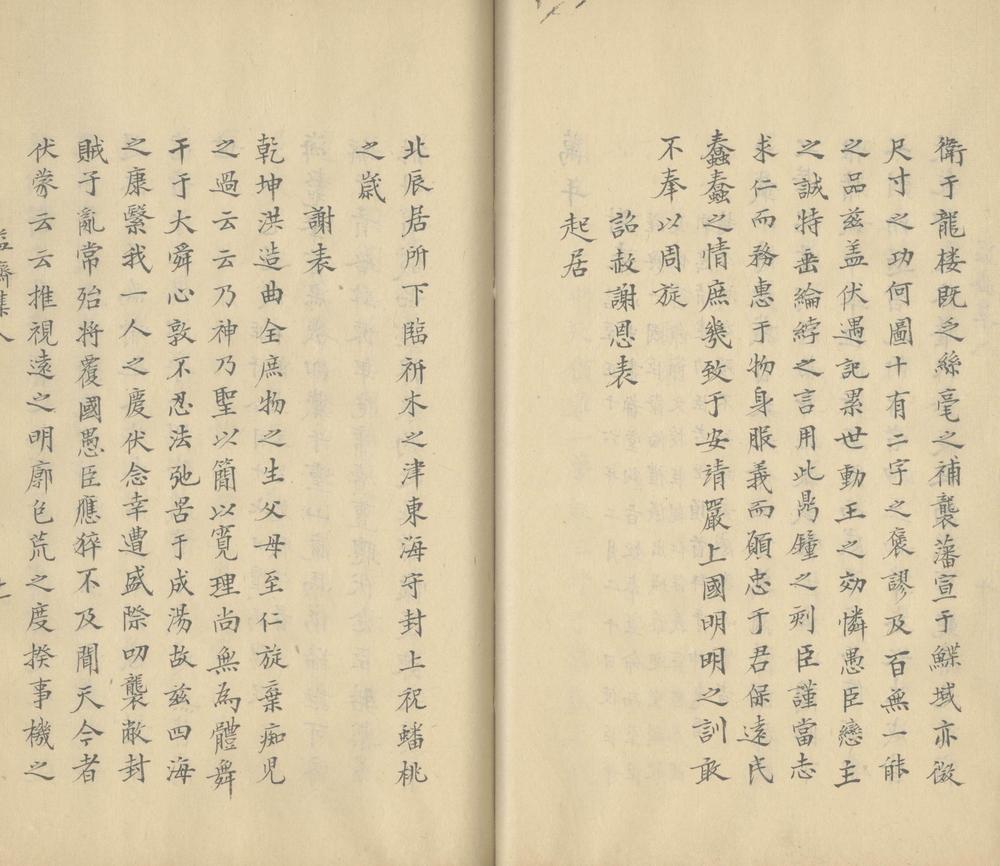 衛于龍楼既乏絲毫之補襲藩宣于鰈域亦微
尺寸之功何圖十有二字之褒謬及百無一能
之品茲盖伏遇記累世動王之効憐愚臣戀主
之誠特垂綸綍之言用此鼎鐘之刻臣謹當志
求仁而務惠于物身服義而願忠于君保遠民
蠢蠢之情庶幾致于安靖嚴上國明明之訓敢
不奉以周旋
詔赦謝恩表
起居
北辰居所下臨析木之津東海守封上祝蟠桃
之歲
謝表
乾坤洪造曲全庶物之生父母至仁旋棄痴児
之過云云乃神乃聖以簡以寛理尚無為體舞
干于大舜心敦不忍法弛罟于成湯故兹四海
之康繄我一人之慶伏念幸遭盛際叨襲敝封
賊子亂常殆將覆國愚臣應猝不及聞天今者
伏蒙云云推視遠之明廓包荒之度揆事機之
益齋集八